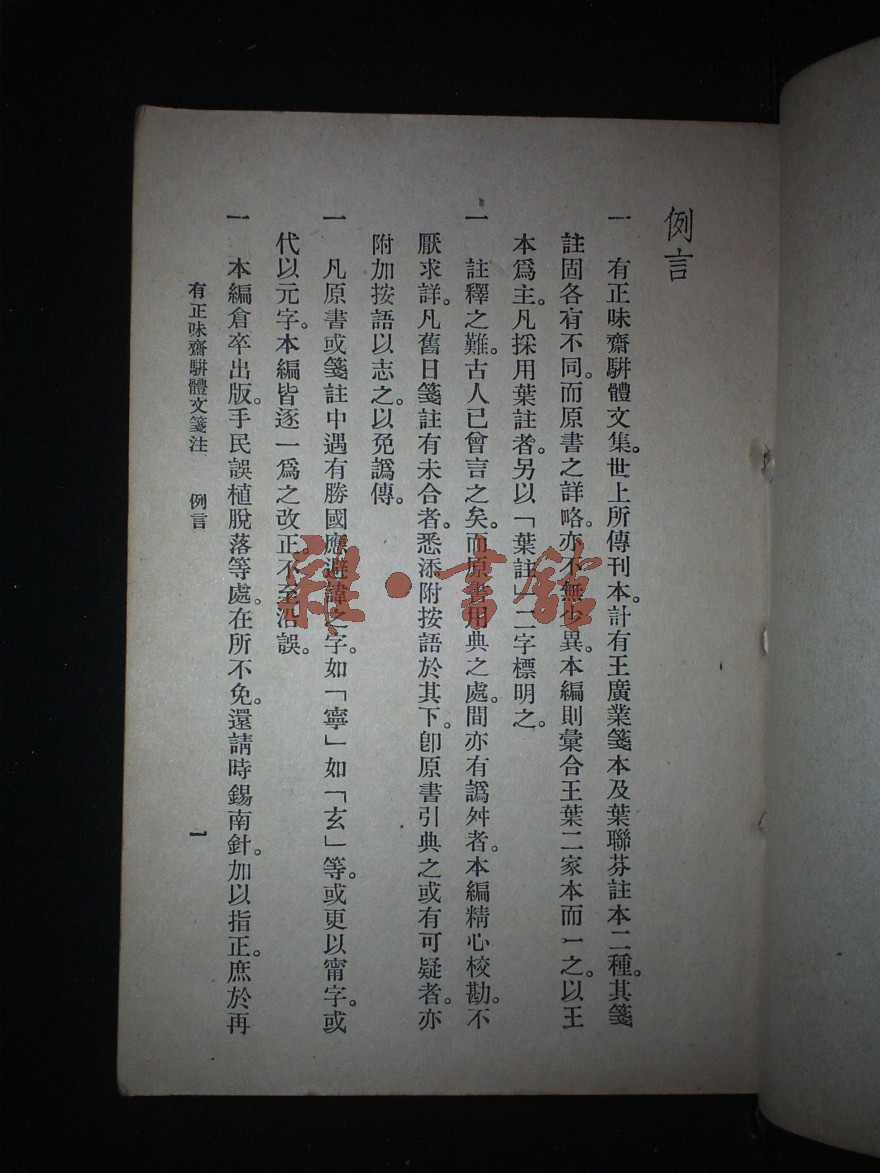 例言
一　有正味齋駢體文集。世上所傳刊本。計有王廣業箋本及葉聯芬註本二種。其箋
註固各有不同。而原書之詳略。亦不無少異。本編則彙合王葉二家本而一之。以王
本爲主。凡採用葉註者。另以「葉註」二字標明之。
一　註釋之難。古人已曾言之矣。而原書用典之處。間亦有譌舛者。本編精心校勘。不
厭求詳。凡舊日箋註有未合者。悉添附按語於其下。卽原書引典之或有可疑者。亦
附加按語以志之。以免譌傳。
一　凡原書或箋註中遇有勝國應避諱之字。如「寧」如「玄」等。或更以甯字。或
代以元字。本編皆逐一爲之改正。不至沿誤。
一　本編倉卒出版。手民誤植脫落等處。在所不免。還請時錫南針。加以指正。庶於再
有正味齋駢體文箋注　例言　一
雜·書館